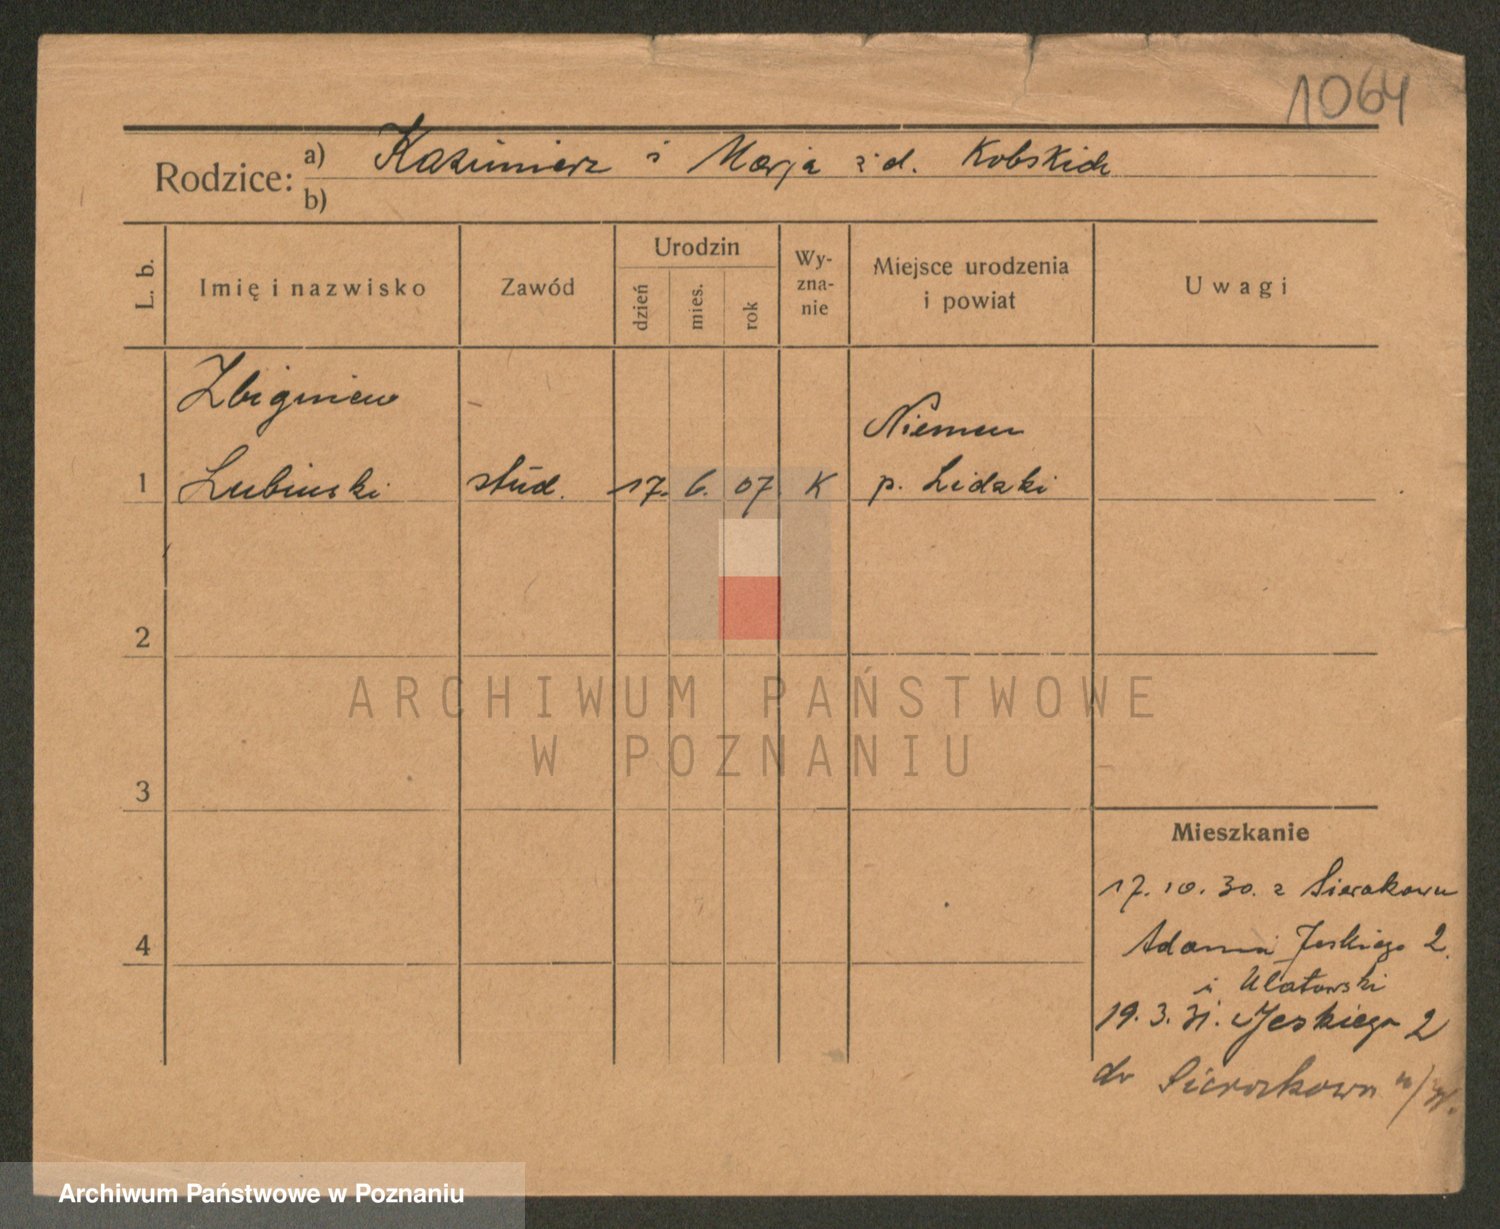 1064
Rodzice: a) Kazimierz i Marja z d. Kobskich
b)
L. b. Imię i nazwisko Zawód Urodzin dzień mies. rok Wy-zna-nie Miejsce urodzenia i powiat Uwagi
Zbigniew Niemen
1 Lubinski stud. 17. 6. 07 K p. Lidzki
2
ARCHIWUM PAŃSTWOWE
W POZNANIU
3
Mieszkanie
17. 10. 30. z Sierakowa
4 Adama Jeskiego 2.
u Ulatowski
19. 3. 31. Jeskiego 2
do Sierakowa
Archiwum Państwowe w Poznaniu